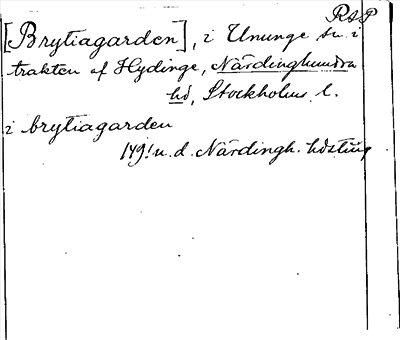 RSP
[Brytiagarden], i Ununge sn. i
trakten af Hydinge, Närdinghundra
hd, Stockholms l.
i brytiagarden
149! u. d. Närdingh. hdsting